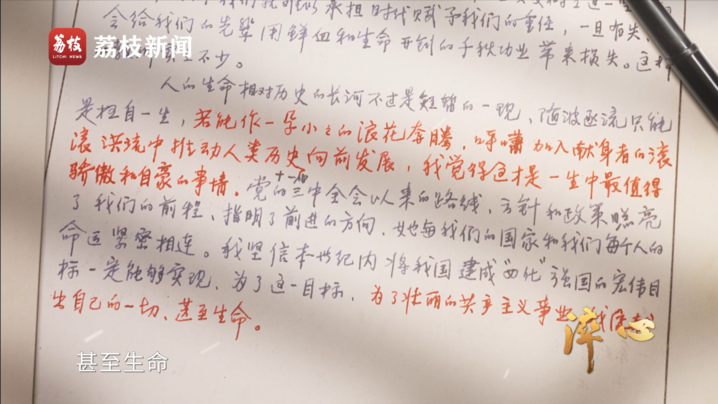 会给我们的先辈用鲜血和生命开创的千秋功业带来损失。这种
不少。
人的生命相对历史的长河不过是短暂的一现，随波逐流只能
是枉自一生，若能作一朵小小的浪花奔腾，呼啸加入献身者的滚
滚洪流中推动人类历史向前发展，我觉得这才是一生中最值得
骄傲和自豪的事情。党的十一届三中全会以来的路线、方针和政策照亮
了我们的前程、指明了前进的方向，她每我们的国家和我们每个人的
命运紧密相连。我坚信本世纪内将我国建成"四化"强国的宏伟目
标一定能够实现，为了这一目标，为了壮丽的共产主义事业，我
出自己的一切、甚至生命。
荔枝
LITCHI NEWS
荔枝新闻
甚至生命
淬